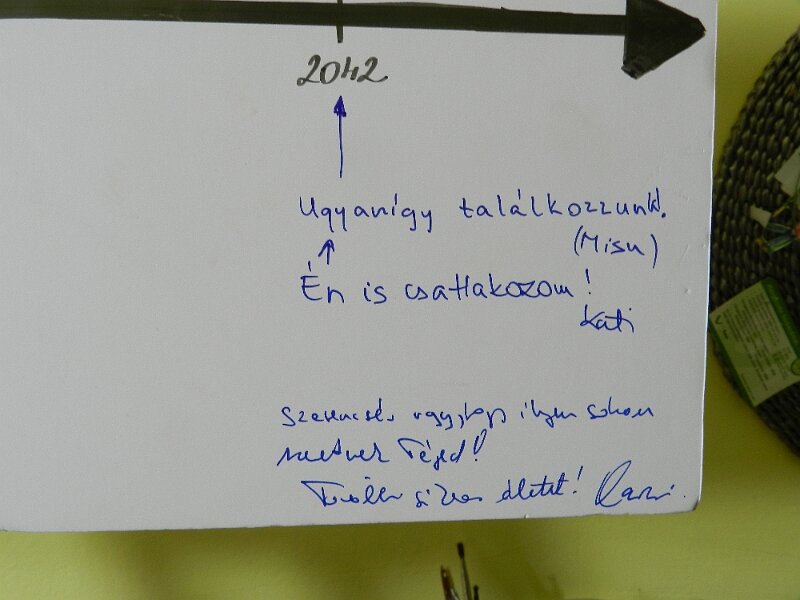 2042
Ugyanígy találkozzunk!
(Misu)
Én is csatlakozom!
Kati
Szerencsés vagy, hogy ilyen sokan
Téged!
További sikeres életet!